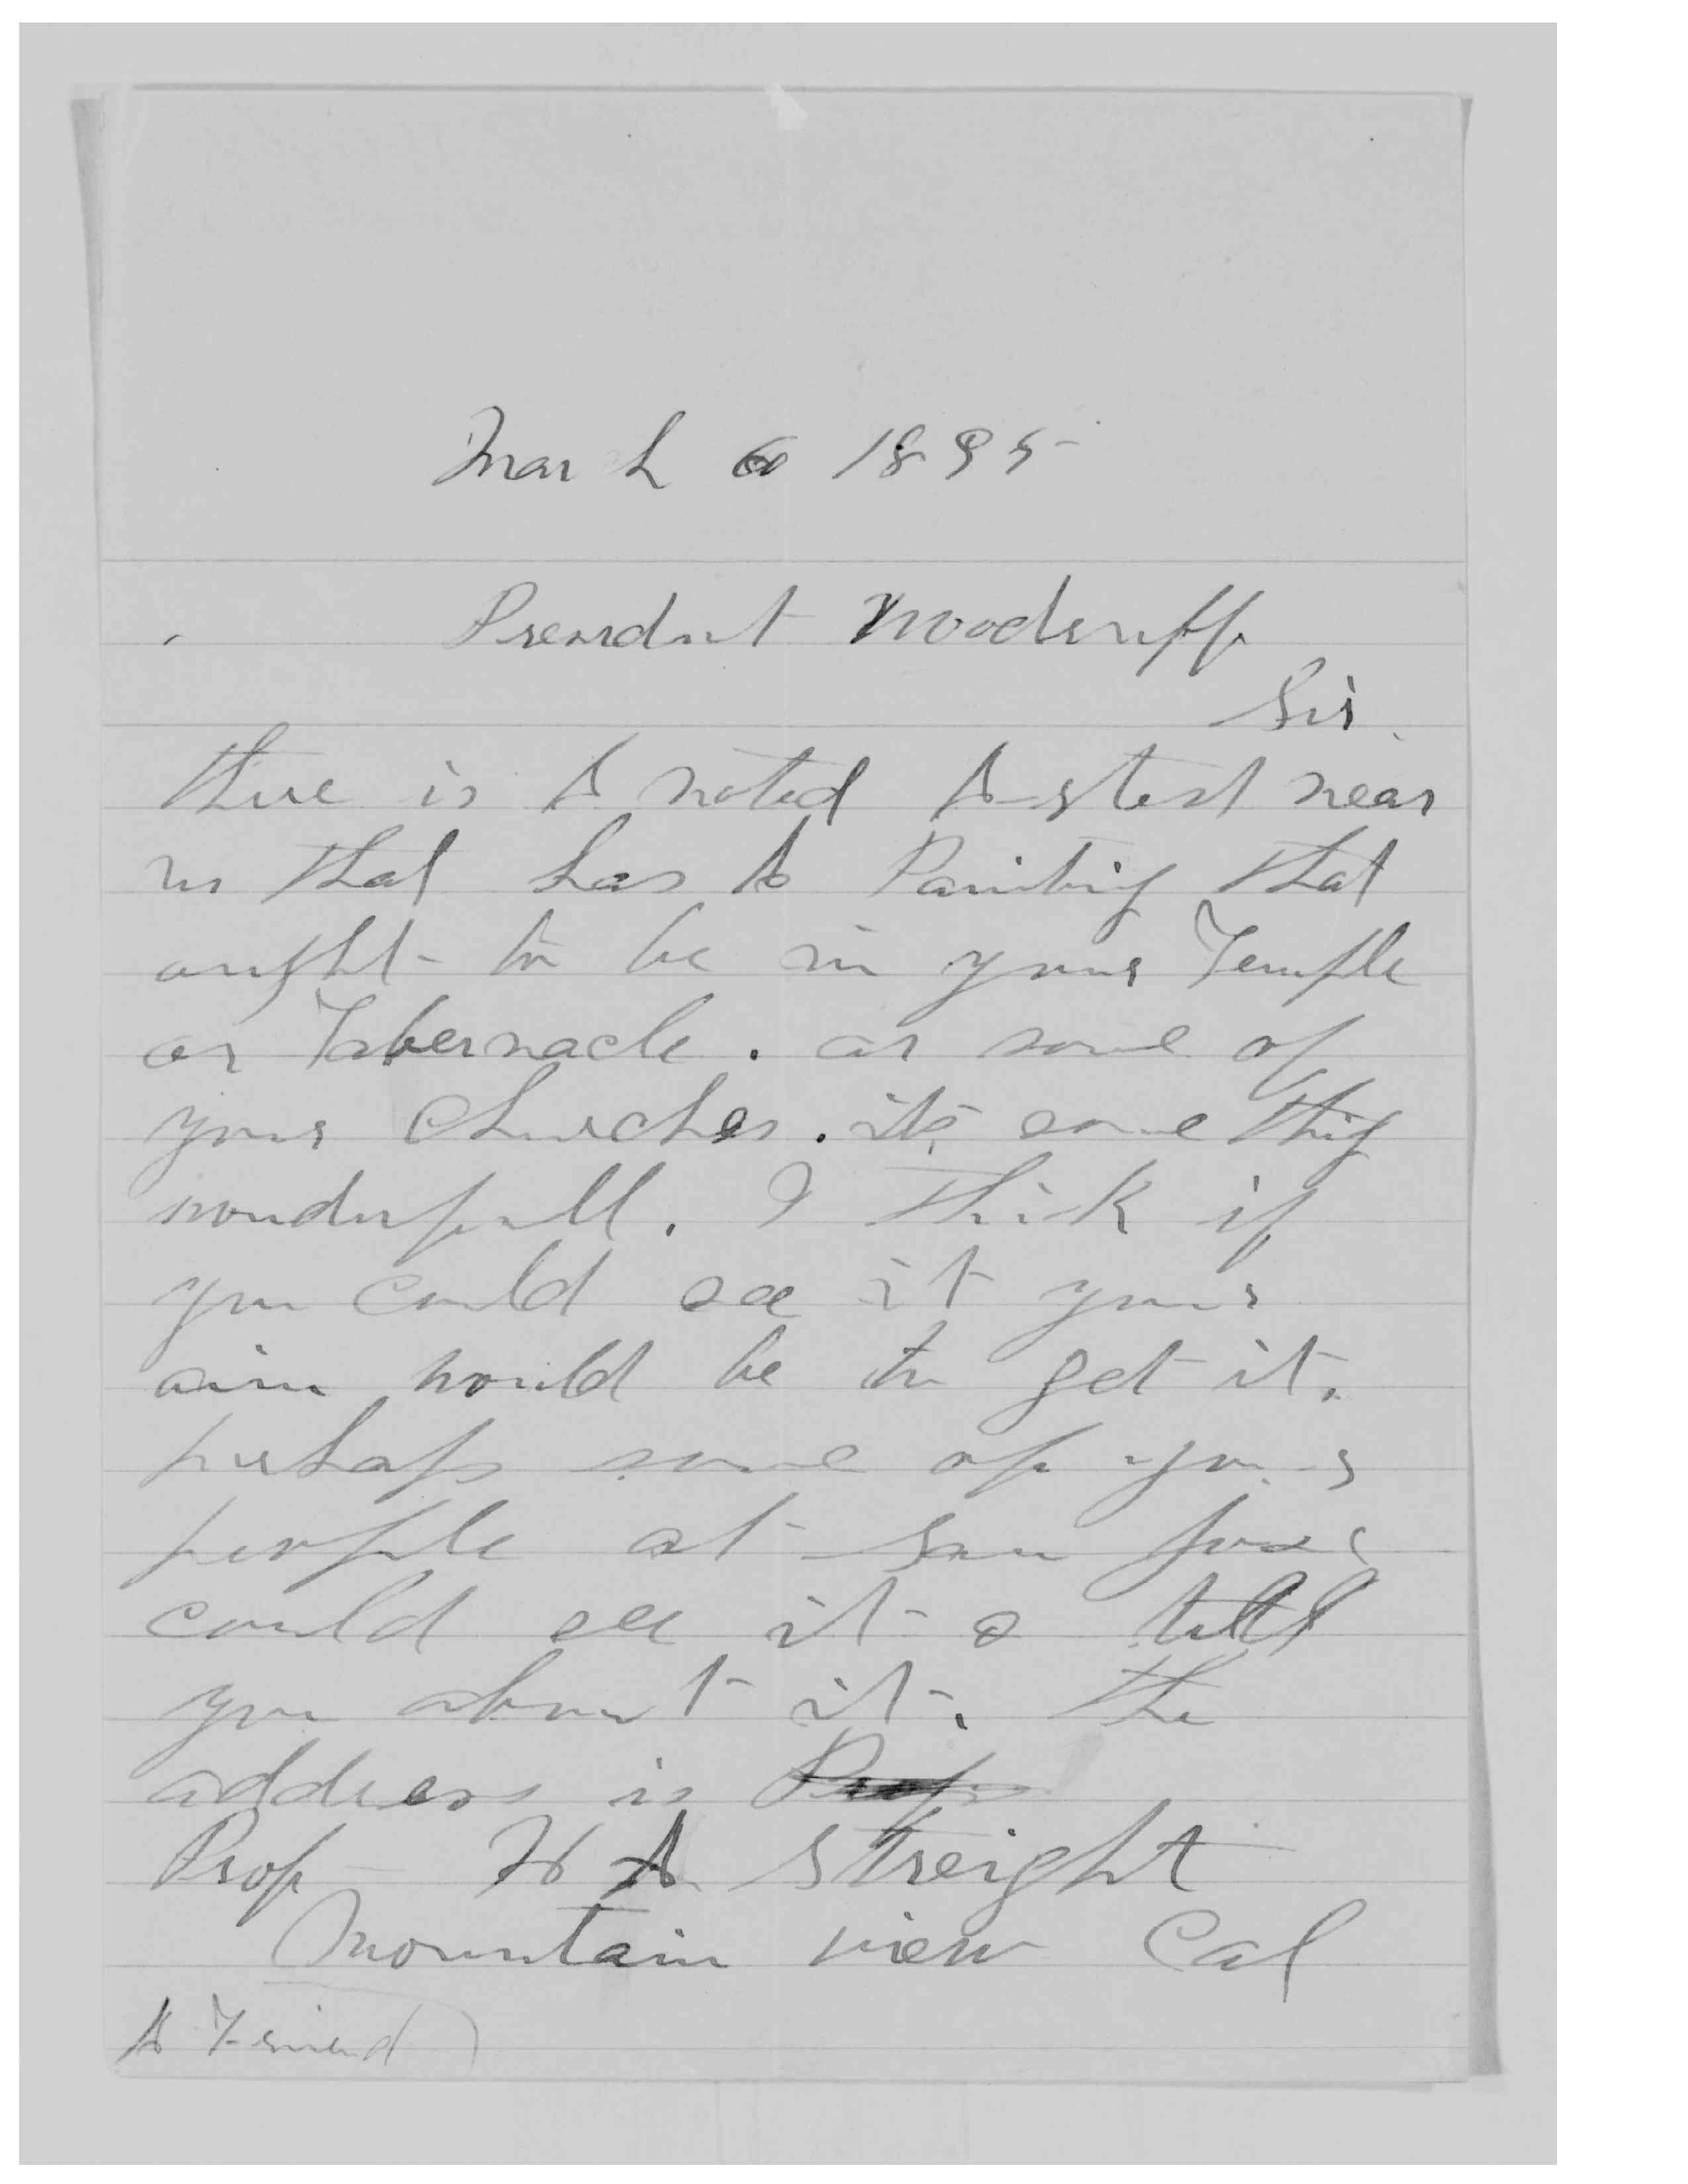 March 6 1895
President Woodruff
Sir
there is A noted Artest near
us that has A Painting that
ought to be in your Temple
or Tabernacle. or some of
your Churches. its some thing
wonderfull. I think if
you could see it your
aim would be to get it.
perhaps some of your
people at San Jose
could see it & tell
you about it. the
address is Prof
Prof H A Streight
Mountain view Cal
A Friend